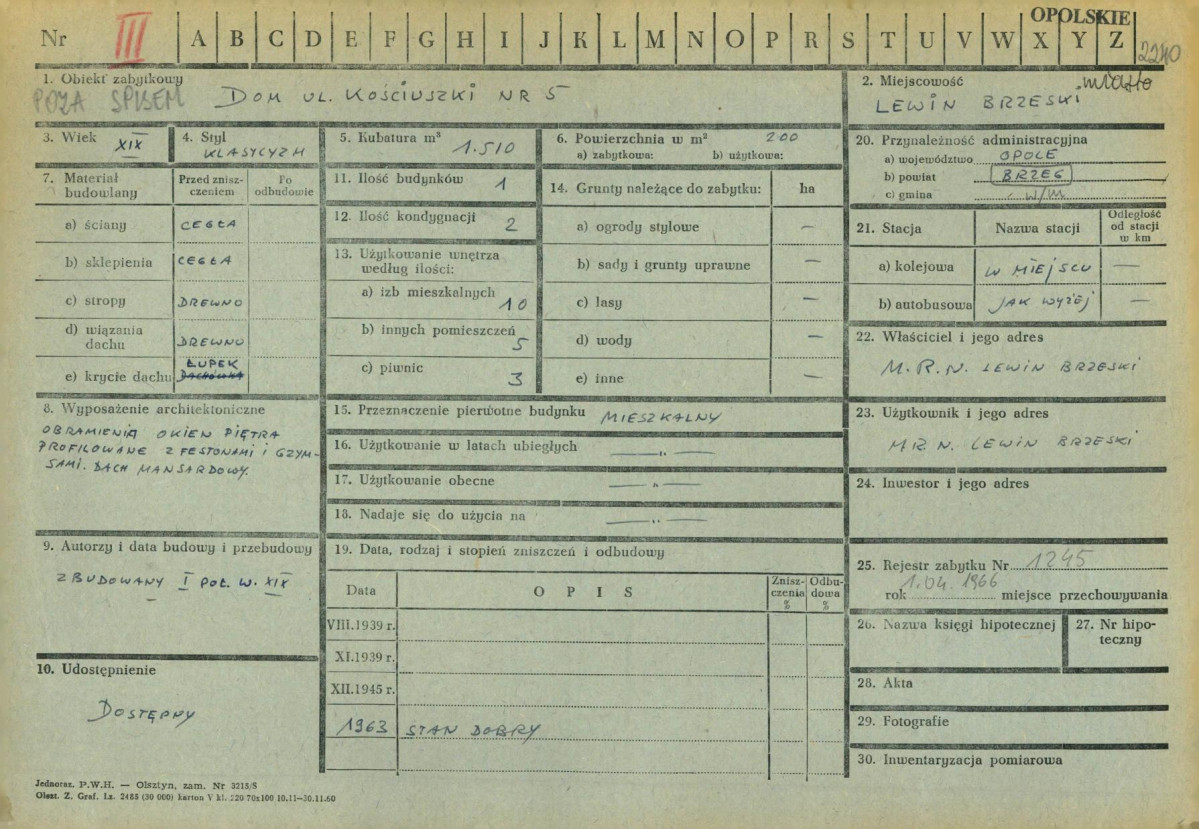 OPOLSKIE
Nr III A B C D E F G H I J K L M N O P R S T U V W X Y Z 2240
1. Obiekt zabytkowy
POZA SPISEM DOM UL. KOŚCIUSZKI NR 5
2. Miejscowość miasto
LEWIN BRZESKI
3. Wiek XIX
4. Styl
KLASYCYZM
5. Kubatura m³ 1.510
6. Powierzchnia w m² 200
a) zabytkowa: b) użytkowa:
7. Materiał budowlany
Przed zniszczeniem
Po odbudowie
a) ściany CEGŁA
b) sklepienia CEGŁA
c) stropy DREWNO
d) wiązania dachu DREWNO
e) krycie dachu ŁUPEK DACHÓWKA
8. Wyposażenie architektoniczne
OBRAMIENIA OKIEN PIĘTRA
PROFILOWANE Z FESTONAMI I GZYM-
SAMI. DACH MANSARDOWY.
9. Autorzy i data budowy i przebudowy
ZBUDOWANY I POŁ. W. XIX
10. Udostępnienie
DOSTĘPNY
11. Ilość budynków 1
12. Ilość kondygnacji 2
13. Użytkowanie wnętrza
według ilości:
a) izb mieszkalnych 10
b) innych pomieszczeń 5
c) piwnic 3
14. Grunty należące do zabytku: ha
a) ogrody stylowe —
b) sady i grunty uprawne —
c) lasy —
d) wody —
e) inne —
15. Przeznaczenie pierwotne budynku MIESZKALNY
16. Użytkowanie w latach ubiegłych —„—
17. Użytkowanie obecne —„—
18. Nadaje się do użycia na —„—
19. Data, rodzaj i stopień zniszczeń i odbudowy
Data OPIS Zniszczenia % Odbudowa %
VIII.1939 r.
XI.1939 r.
XII.1945 r.
1963 STAN DOBRY
20. Przynależność administracyjna
a) województwo OPOLE
b) powiat BRZEG
c) gmina w/m
21. Stacja Nazwa stacji Odległość od stacji w km
a) kolejowa W MIEJSCU —
b) autobusowa JAK WYŻEJ —
22. Właściciel i jego adres
M.R.N. LEWIN BRZESKI
23. Użytkownik i jego adres
MR.N. LEWIN BRZESKI
24. Inwestor i jego adres
25. Rejestr zabytku Nr 1245
rok 1.04.1966 miejsce przechowywania
26. Nazwa księgi hipotecznej
27. Nr hipoteczny
28. Akta
29. Fotografie
30. Inwentaryzacja pomiarowa
Jednoraz. P.W.H. — Olsztyn, zam. Nr 3215/S
Olszt. Z. Graf. Lz. 2485 (30 000) karton V kl. 220 70x100 10.11—30.11.60